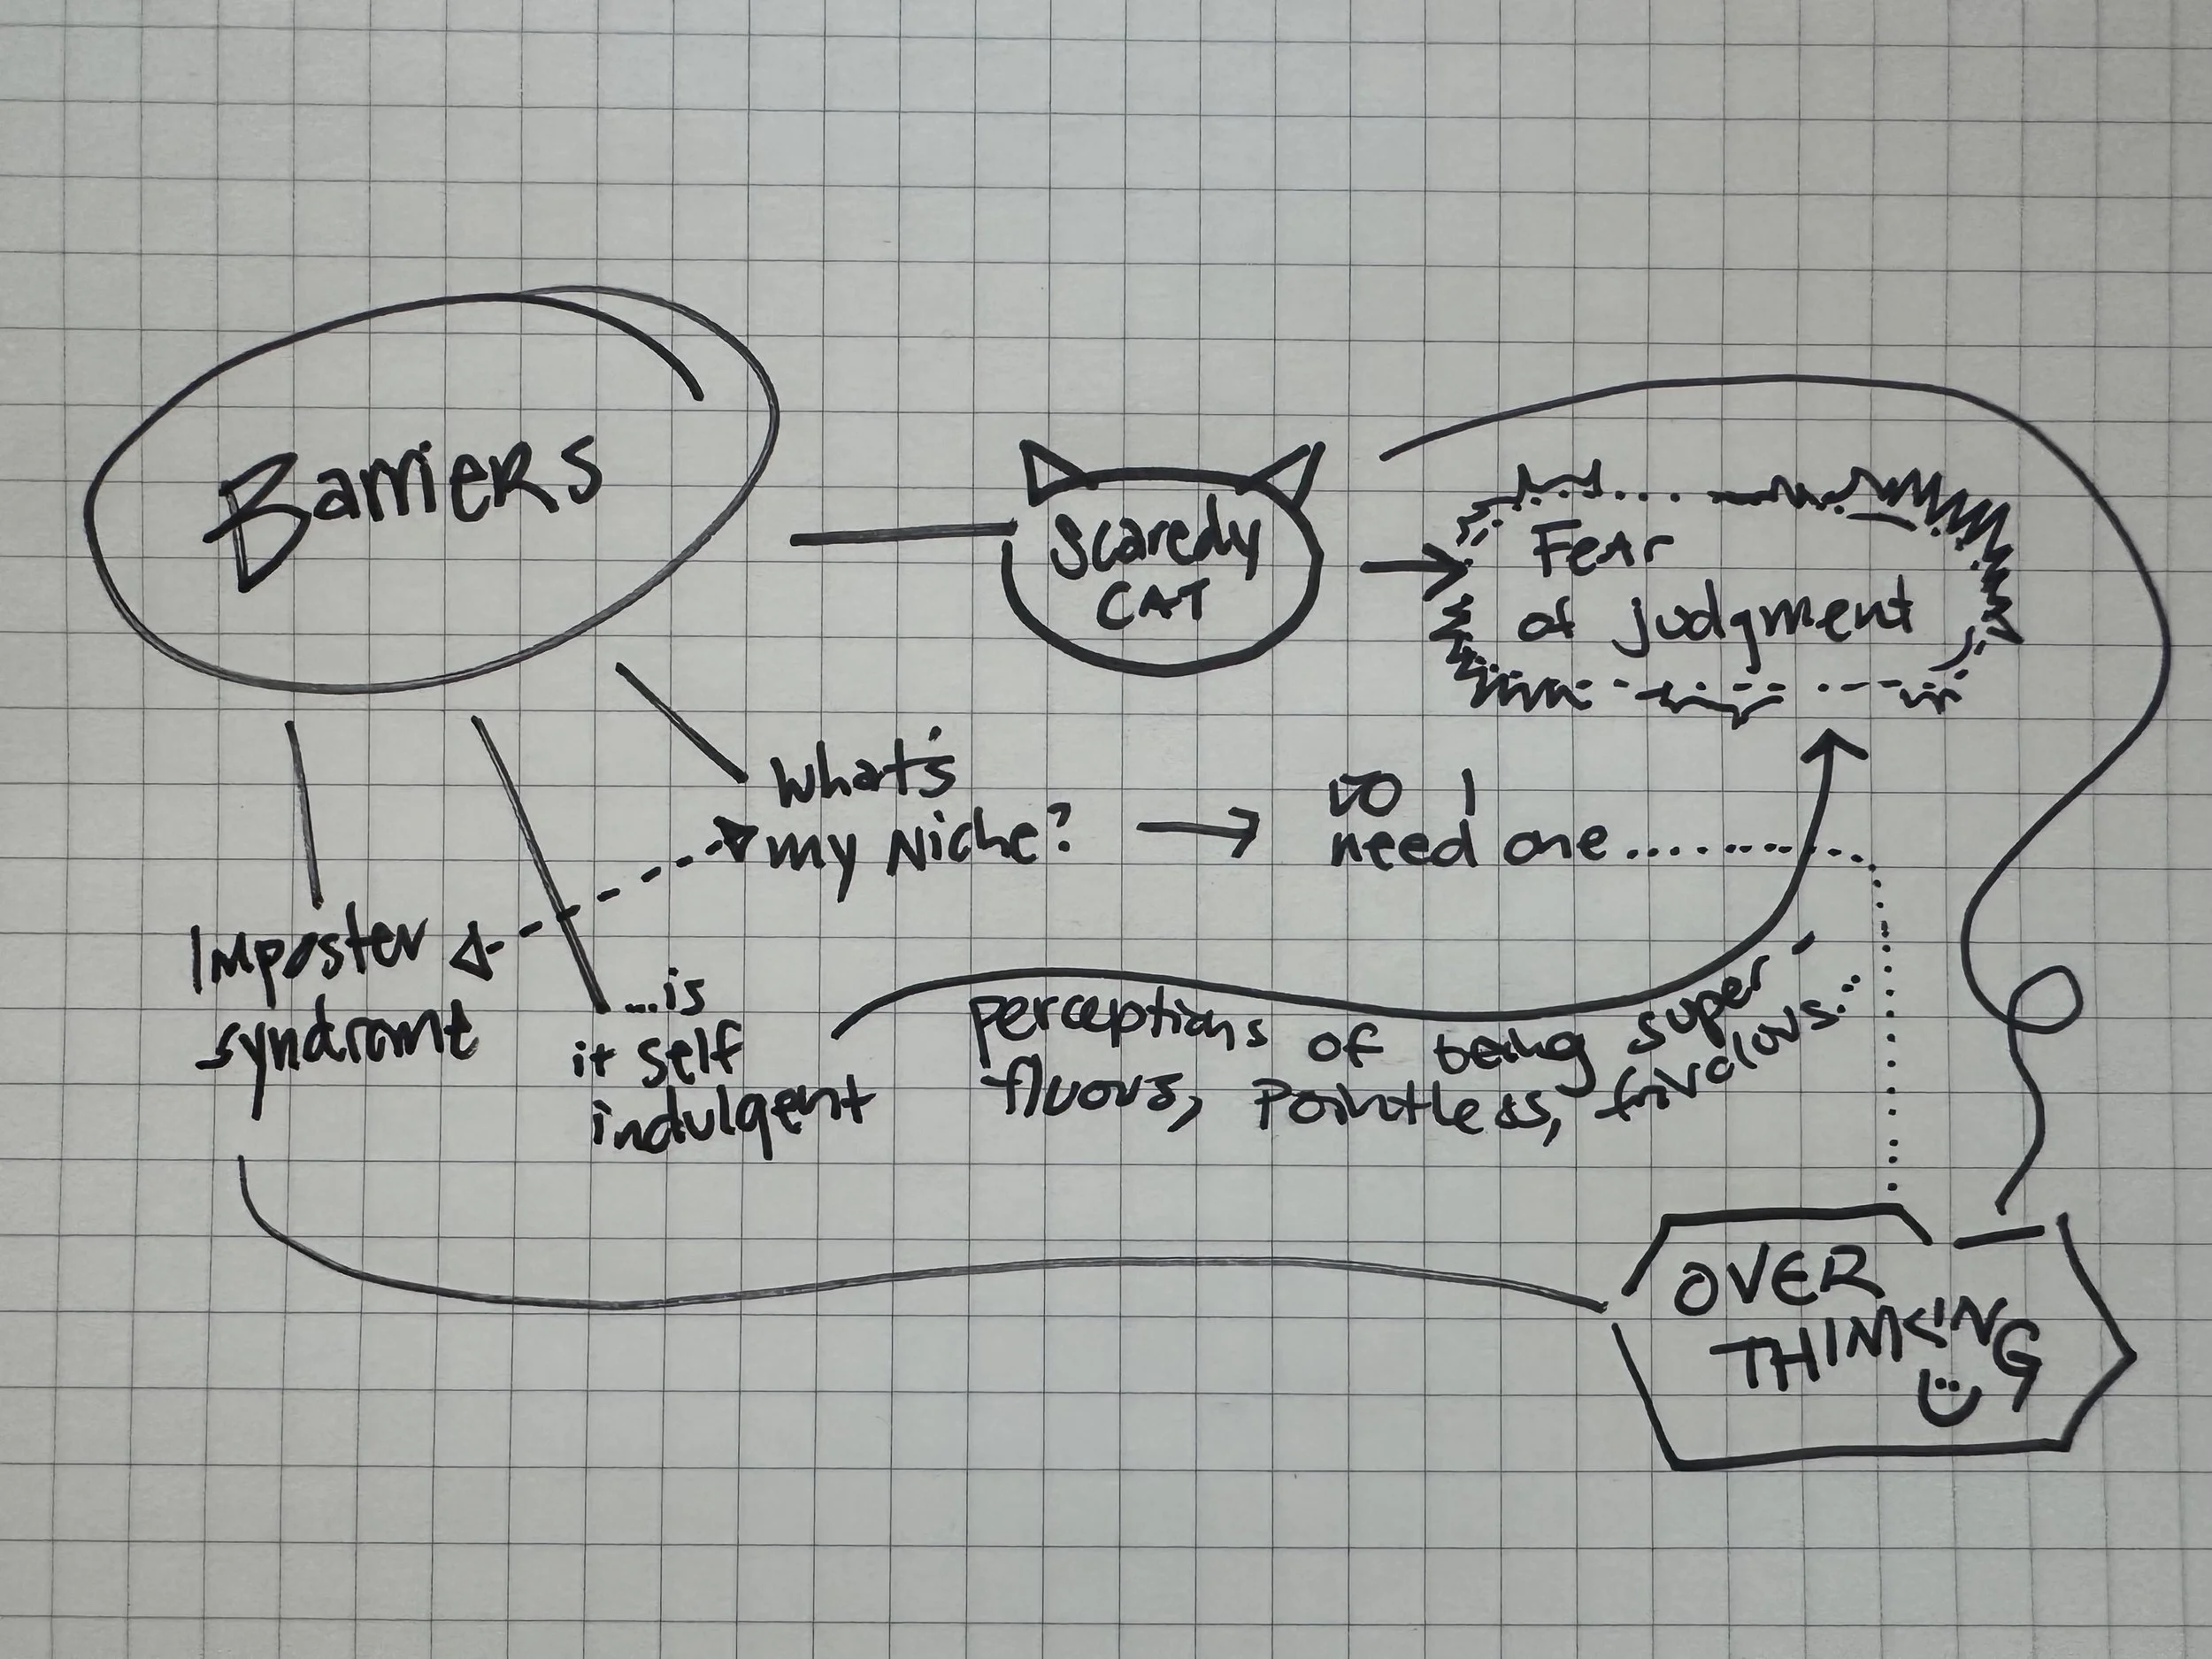 Barriers
Scaredy
CAT
Fear
of judgment
What's
my Niche?
DO I
need one.............
Imposter
syndrome
...is
it self
indulgent
perceptions of being super-
fluous, pointless, frivolous...
OVER
THINKING